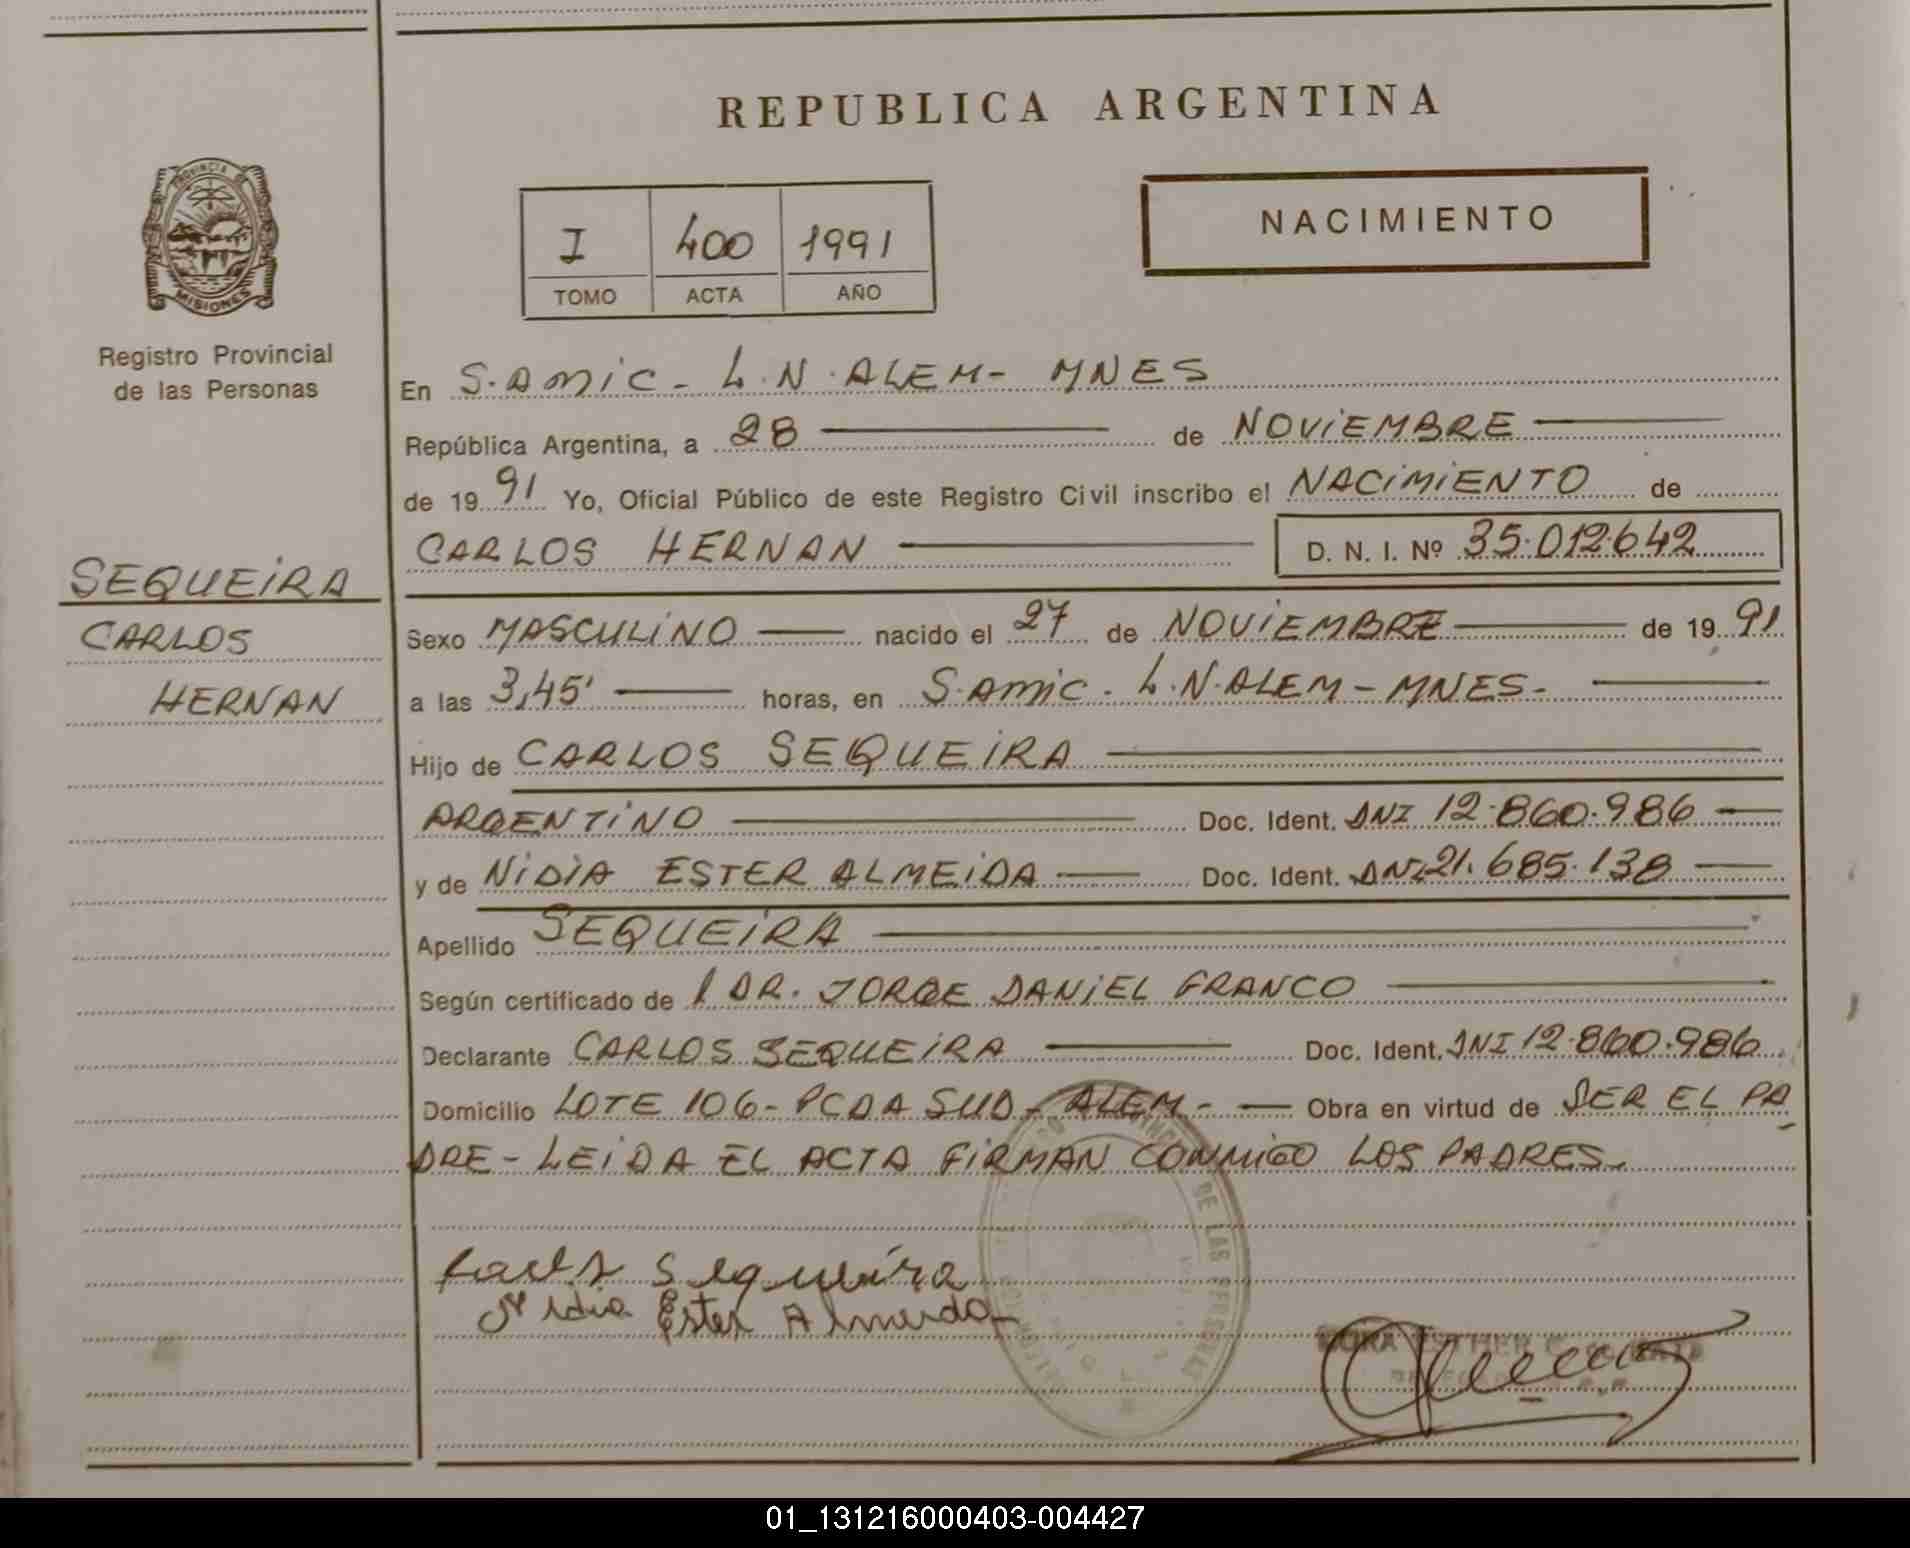 REPUBLICA ARGENTINA
PROVINCIA DE
MISIONES
Registro Provincial
de las Personas
I 400 1991
TOMO ACTA AÑO
NACIMIENTO
En S. AMIC - L.N. ALEM - MNES
República Argentina, a 28 de NOVIEMBRE
de 19 91 Yo, Oficial Público de este Registro Civil inscribo el NACIMIENTO de
CARLOS HERNAN D. N. I. Nº 35.012.642
SEQUEIRA
CARLOS
HERNAN
Sexo MASCULINO nacido el 27 de NOVIEMBRE de 19 91
a las 3,45' horas, en S. AMIC. L.N. ALEM - MNES -
Hijo de CARLOS SEQUEIRA
ARGENTINO Doc. Ident. DNI 12.860.986
y de NIDIA ESTER ALMEIDA Doc. Ident. DNI 21.685.138
Apellido SEQUEIRA
Según certificado de DR. JORGE DANIEL FRANCO
Declarante CARLOS SEQUEIRA Doc. Ident. DNI 12.860.986
Domicilio LOTE 106 - PCDA SUD - ALEM - Obra en virtud de SER EL PA
DRE - LEIDA EL ACTA FIRMAN CONMIGO LOS PADRES.
DE LAS PERSONAS
Carlos Sequeira
Nidia Ester Almeida
ESTHER
01_131216000403-004427